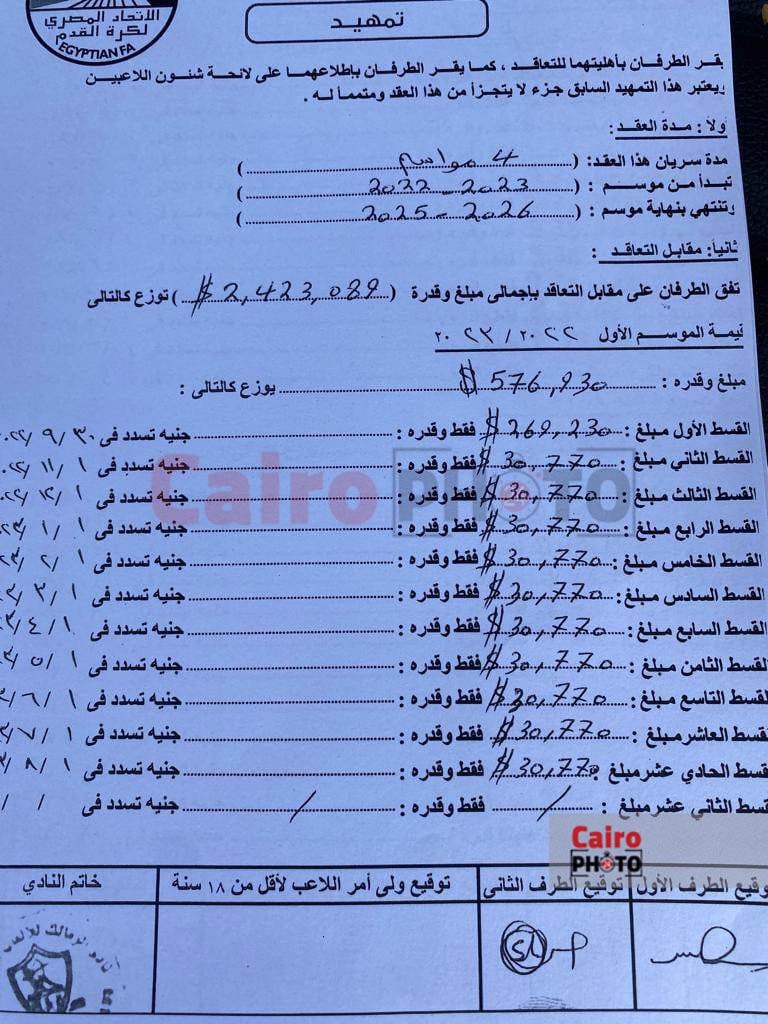 الاتحاد المصري
لكرة القدم
EGYPTIAN FA
تمهيد
يقر الطرفان بأهليتهما للتعاقد ، كما يقر الطرفان بإطلاعهما على لائحة شئون اللاعبين
ويعتبر هذا التمهيد السابق جزء لا يتجزأ من هذا العقد ومتمماً له .
ولاً : مدة العقد :
مدة سريان هذا العقد : ( 4 مواسم )
تبدأ من موسم : ( 2022 - 2023 )
وتنتهي بنهاية موسم : ( 2025 - 2026 )
ثانياً : مقابل التعاقد :
تفق الطرفان على مقابل التعاقد بإجمالى مبلغ وقدرة ( $ 2,423,089 ) توزع كالتالى
قيمة الموسم الأول ٢٠٢٢ / ٢٠٢٣
مبلغ وقدره : $ 576,930 يوزع كالتالى :
القسط الأول مبلغ : $ 269,230 فقط وقدره : جنيه تسدد فى ٣٠ / ٩ /
القسط الثاني مبلغ : $ 30,770 فقط وقدره : جنيه تسدد فى ١ / ١١ /
القسط الثالث مبلغ : $ 30,770 فقط وقدره : جنيه تسدد فى ١ / ١٢ /
القسط الرابع مبلغ : $ 30,770 فقط وقدره : جنيه تسدد فى ١ / ١ /
القسط الخامس مبلغ : $ 30,770 فقط وقدره : جنيه تسدد فى ١ / ٢ /
القسط السادس مبلغ : $ 30,770 فقط وقدره : جنيه تسدد فى ١ / ٣ /
القسط السابع مبلغ : $ 30,770 فقط وقدره : جنيه تسدد فى ١ / ٤ /
القسط الثامن مبلغ : $ 30,770 فقط وقدره : جنيه تسدد فى ١ / ٥ /
القسط التاسع مبلغ : $ 30,770 فقط وقدره : جنيه تسدد فى ١ / ٦ /
القسط العاشر مبلغ : $ 30,770 فقط وقدره : جنيه تسدد فى ١ / ٧ /
قسط الحادي عشر مبلغ : $ 30,770 فقط وقدره : جنيه تسدد فى ١ / ٨ /
قسط الثاني عشر مبلغ : / فقط وقدره : / جنيه تسدد فى / /
Cairo PHOTO
Cairo
PHOTO
توقيع الطرف الأول توقيع الطرف الثانى توقيع ولى أمر اللاعب لأقل من ١٨ سنة خاتم النادي